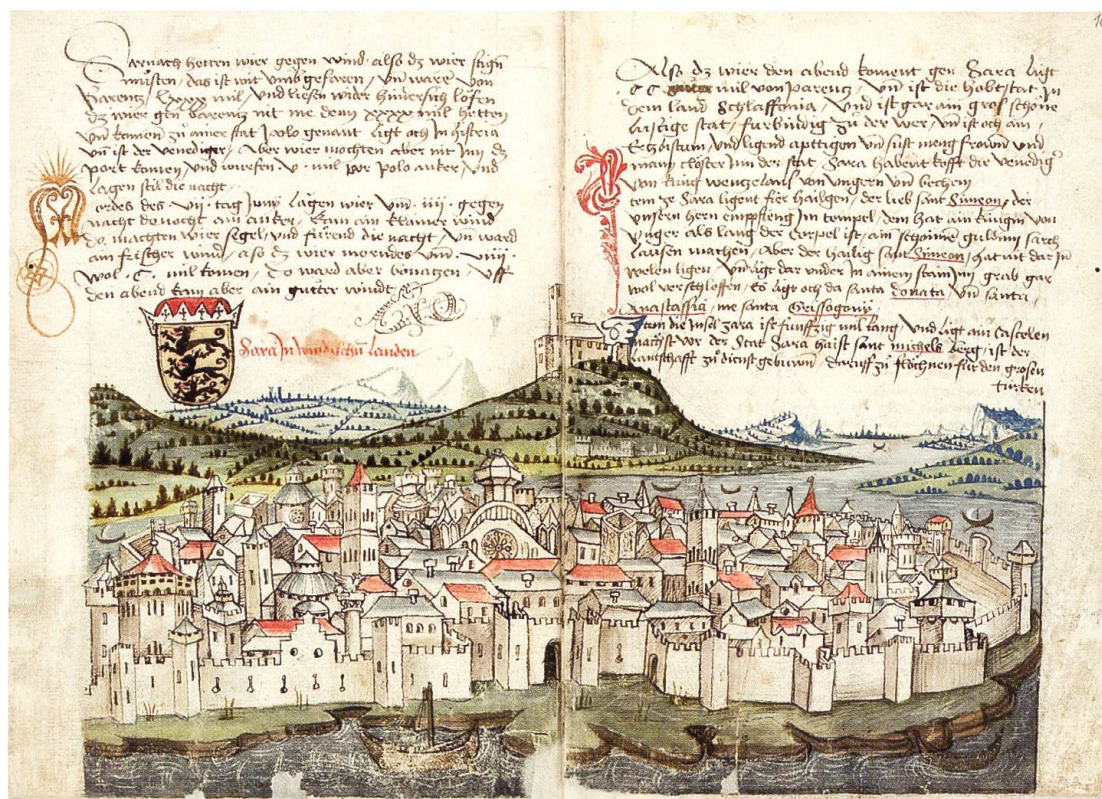 Darnach hetten wier gegen wind also dz wier stign
musten, das ist wit umb gefaren, vn̄ ware von
parentz lxxxx mil, vnd liesen wider hindersich lofen
dz wier gen parentz nit me denn xxxx mil hetten
vn̄ komen zu ainer stat polo genant ligt och in Histeria
vn̄ ist der venediger, Aber wier mochten aber nit Inn dz
port komen, vnd wurfen v mil por polo anker, vnd
lagen stil die nacht
ordes des vii tag Junÿ lagen wier vnn iiii gegen
nacht donocht am anker, kam ain klainer wind
do machten wier segel, vnd furend die nacht, vn̄ ward
ain frischer wind, also dz wier morndes vmb viiii
wol C mil komen, Do ward aber bonatzen vff
den abend kam aber ain gutter windt
Sara In windischn̄ landen
Also dz wier den abend koment gen Sara ligt
CC mil von parentz, vn̄ ist die habtstat In
dem land Schlaffonia, vnd ist gar ain gros schöne
lustige stat, furbindig zu der wer, vn̄ ist och ain
Ertzbistum, vnd ligend apttigen vn̄ sust meng frowen vnd
mann closter Inn der stat Sara habent kofft die venedig
von kung wentzelaus von vngern vn̄ bechem
tem ze Sara ligent fier hailgen, der lieb sant Simeon, der
vnsern hern empfieng Im tempel, dem hat ain kungin von
vnger als lang der corpel ist, ain schainen guldinn sarch
lausen machen, Aber der hailig sant Simeon, hat nit dar In
welen ligen, vnd ligt dar vnder In ainem stainin grab gar
wol verschlossen, Es ligt och da santa donata, vn̄ santa
anastassia, me santa Grissogony
tem die Insel zara ist funffzig mil lang, vnd ligt ain castelen
nachst vor der stat Zara haist sant michels berg, ist der
lantschafft zu dienst gebuwen, daruff zu flöchnen für den grosen
turken